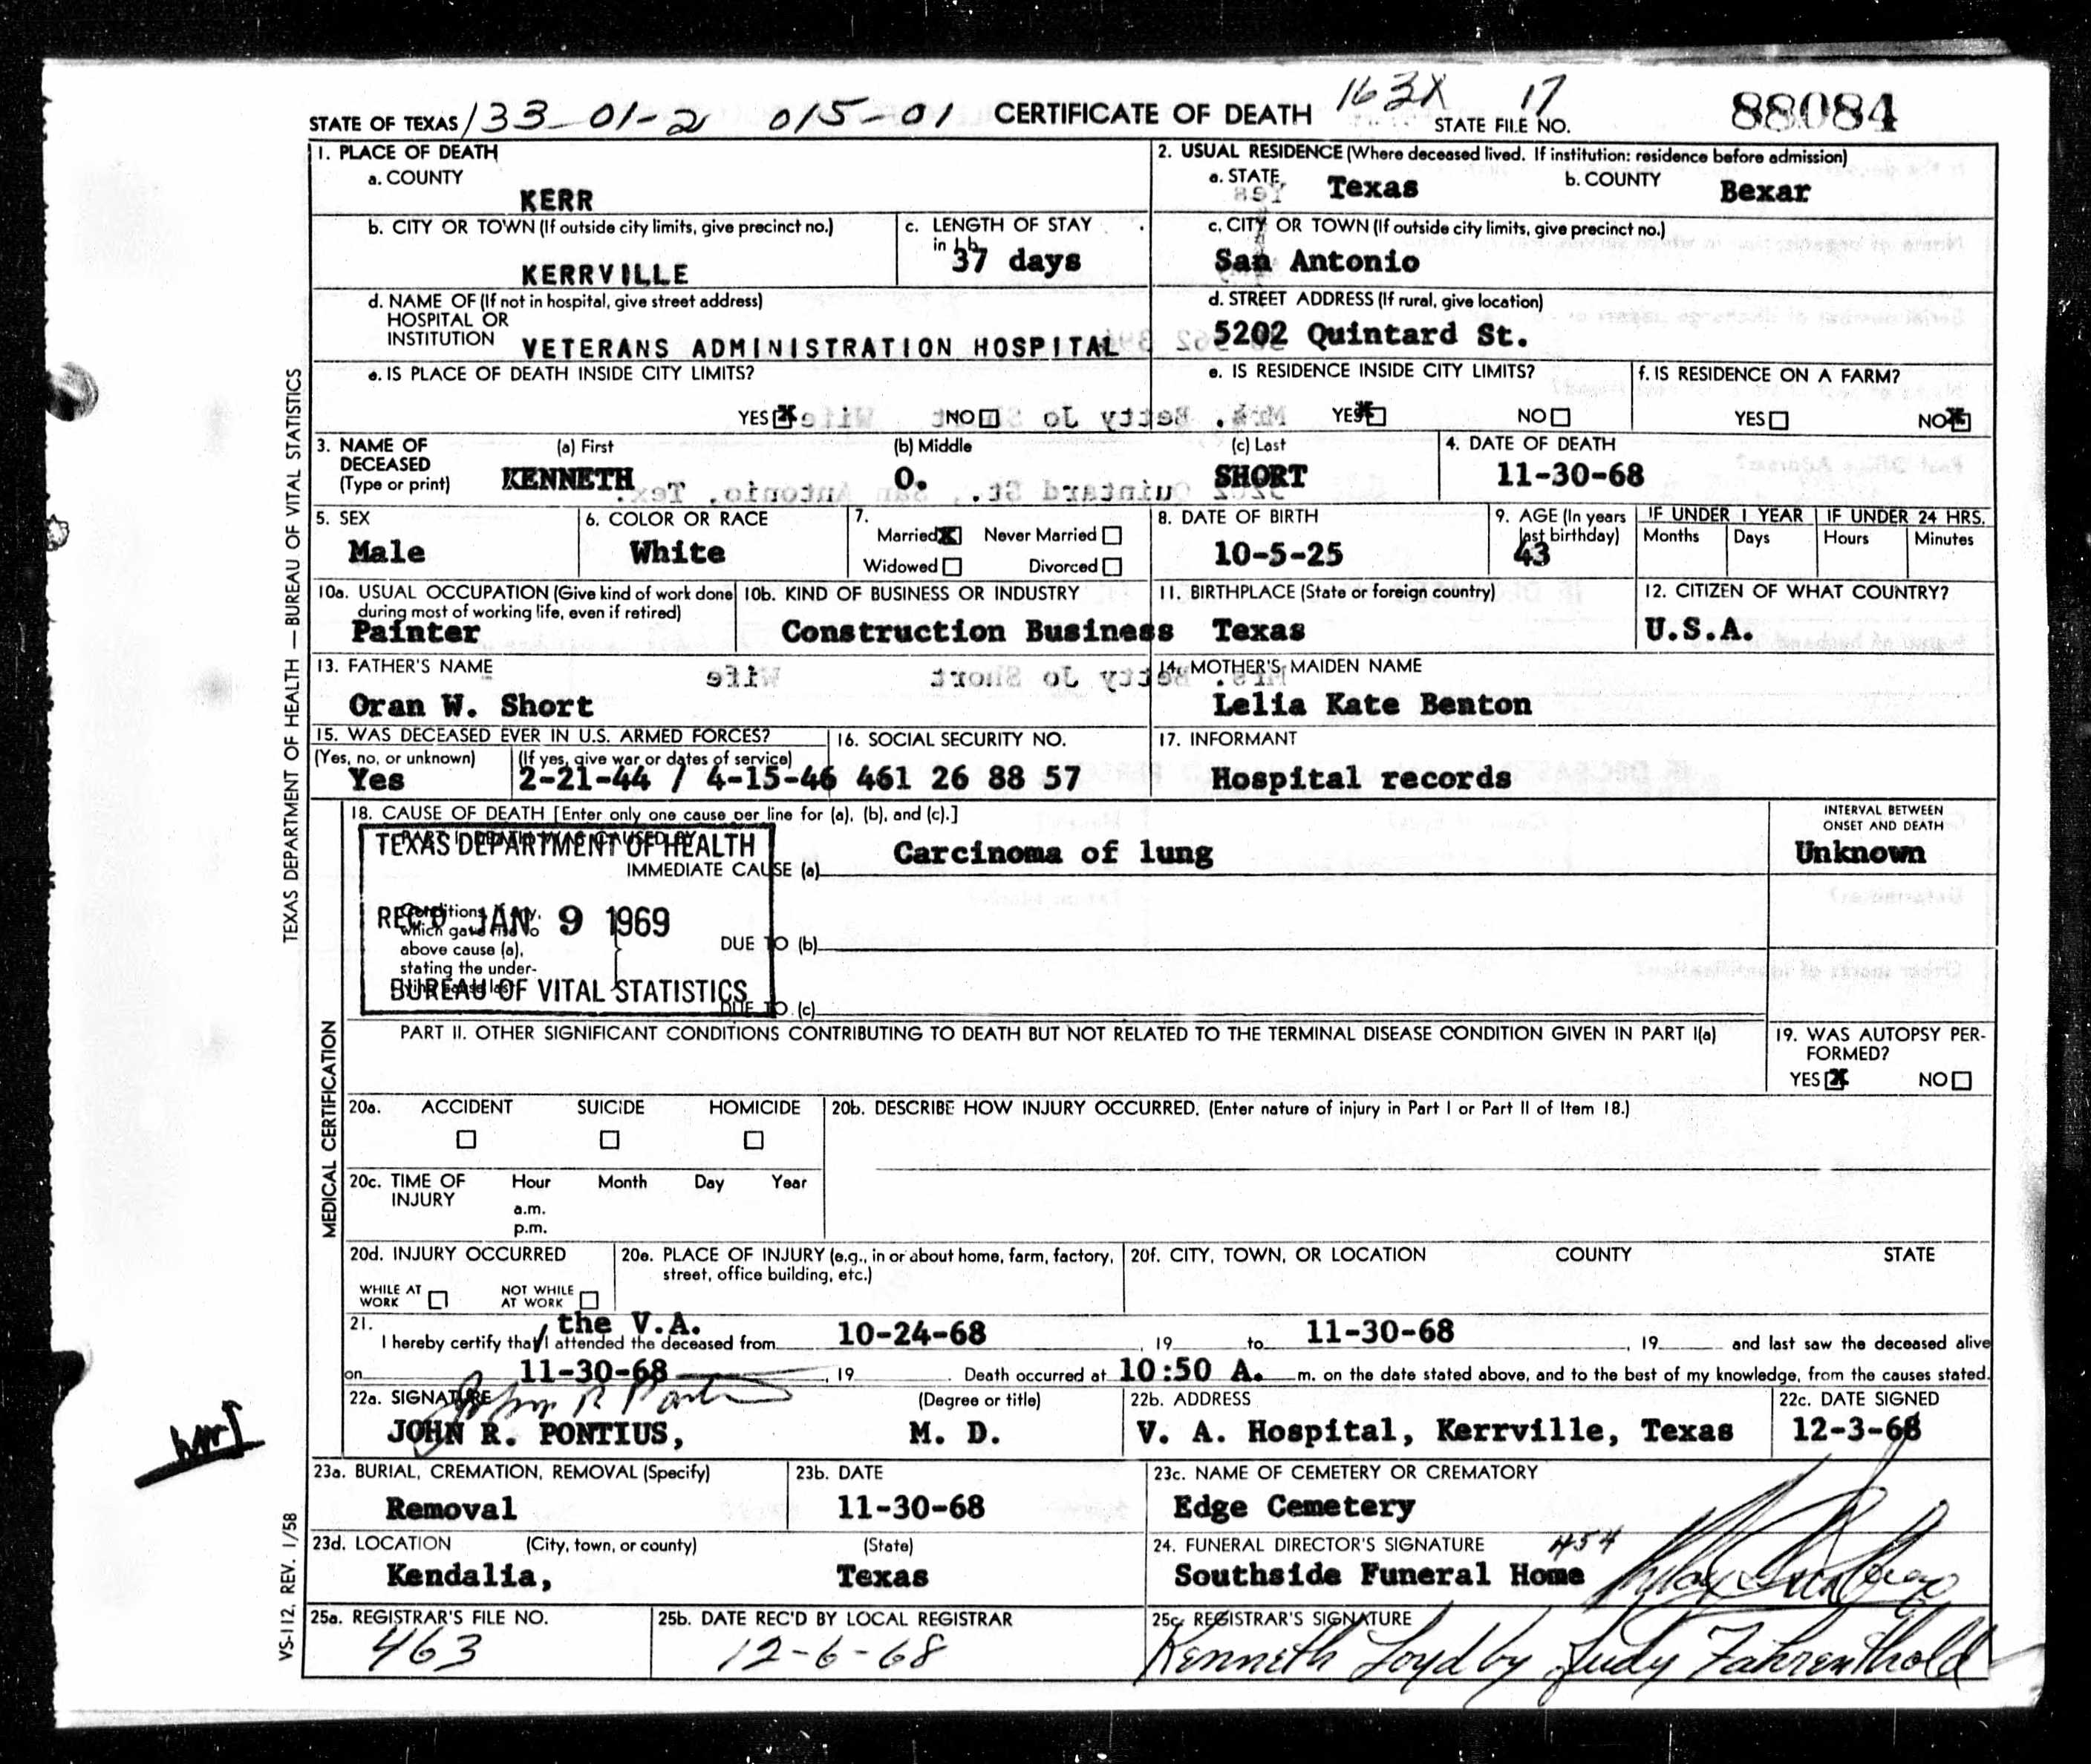 STATE OF TEXAS 133-01-2 015-01 CERTIFICATE OF DEATH 163X 17 STATE FILE NO. 88084
1. PLACE OF DEATH
a. COUNTY
KERR
2. USUAL RESIDENCE (Where deceased lived. If institution: residence before admission)
a. STATE Texas b. COUNTY Bexar
b. CITY OR TOWN (If outside city limits, give precinct no.)
KERRVILLE
c. LENGTH OF STAY
in 1b
37 days
c. CITY OR TOWN (If outside city limits, give precinct no.)
San Antonio
d. NAME OF (If not in hospital, give street address)
HOSPITAL OR
INSTITUTION VETERANS ADMINISTRATION HOSPITAL
d. STREET ADDRESS (If rural, give location)
5202 Quintard St.
e. IS PLACE OF DEATH INSIDE CITY LIMITS?
YES X NO
e. IS RESIDENCE INSIDE CITY LIMITS?
YES X NO
f. IS RESIDENCE ON A FARM?
YES NO X
3. NAME OF DECEASED (Type or print)
(a) First (b) Middle (c) Last
KENNETH O. SHORT
4. DATE OF DEATH
11-30-68
5. SEX
Male
6. COLOR OR RACE
White
7.
Married X Never Married
Widowed Divorced
8. DATE OF BIRTH
10-5-25
9. AGE (In years
last birthday)
43
IF UNDER 1 YEAR IF UNDER 24 HRS.
Months Days Hours Minutes
10a. USUAL OCCUPATION (Give kind of work done
during most of working life, even if retired)
Painter
10b. KIND OF BUSINESS OR INDUSTRY
Construction Business
11. BIRTHPLACE (State or foreign country)
Texas
12. CITIZEN OF WHAT COUNTRY?
U.S.A.
13. FATHER'S NAME
Oran W. Short
14. MOTHER'S MAIDEN NAME
Lelia Kate Benton
15. WAS DECEASED EVER IN U.S. ARMED FORCES?
(Yes, no, or unknown) (If yes, give war or dates of service)
Yes 2-21-44 / 4-15-46
16. SOCIAL SECURITY NO.
461 26 88 57
17. INFORMANT
Hospital records
18. CAUSE OF DEATH [Enter only one cause per line for (a), (b), and (c).]
INTERVAL BETWEEN
ONSET AND DEATH
TEXAS DEPARTMENT OF HEALTH
IMMEDIATE CAUSE (a) Carcinoma of lung Unknown
REC'D JAN 9 1969
Conditions, if any,
which gave rise to
above cause (a),
stating the under-
lying cause last
DUE TO (b)
BUREAU OF VITAL STATISTICS
DUE TO (c)
PART II. OTHER SIGNIFICANT CONDITIONS CONTRIBUTING TO DEATH BUT NOT RELATED TO THE TERMINAL DISEASE CONDITION GIVEN IN PART I(a)
19. WAS AUTOPSY PER-
FORMED?
YES X NO
20a. ACCIDENT SUICIDE HOMICIDE
20b. DESCRIBE HOW INJURY OCCURRED. (Enter nature of injury in Part I or Part II of Item 18.)
20c. TIME OF INJURY Hour Month Day Year
a.m.
p.m.
20d. INJURY OCCURRED
WHILE AT WORK NOT WHILE AT WORK
20e. PLACE OF INJURY (e.g., in or about home, farm, factory,
street, office building, etc.)
20f. CITY, TOWN, OR LOCATION COUNTY STATE
21. the V.A.
I hereby certify that I attended the deceased from 10-24-68, 19 to 11-30-68, 19 and last saw the deceased alive
on 11-30-68, 19 . Death occurred at 10:50 A. m. on the date stated above, and to the best of my knowledge, from the causes stated.
22a. SIGNATURE (Degree or title)
John R Pontius
JOHN R. PONTIUS, M. D.
22b. ADDRESS
V. A. Hospital, Kerrville, Texas
22c. DATE SIGNED
12-3-68
23a. BURIAL, CREMATION, REMOVAL (Specify)
Removal
23b. DATE
11-30-68
23c. NAME OF CEMETERY OR CREMATORY
Edge Cemetery
23d. LOCATION (City, town, or county) (State)
Kendalia, Texas
24. FUNERAL DIRECTOR'S SIGNATURE 454
Southside Funeral Home
25a. REGISTRAR'S FILE NO.
463
25b. DATE REC'D BY LOCAL REGISTRAR
12-6-68
25c. REGISTRAR'S SIGNATURE
Kenneth Loyd by Judy Fahrenthold
TEXAS DEPARTMENT OF HEALTH — BUREAU OF VITAL STATISTICS
MEDICAL CERTIFICATION
VS-112, REV. 1/58